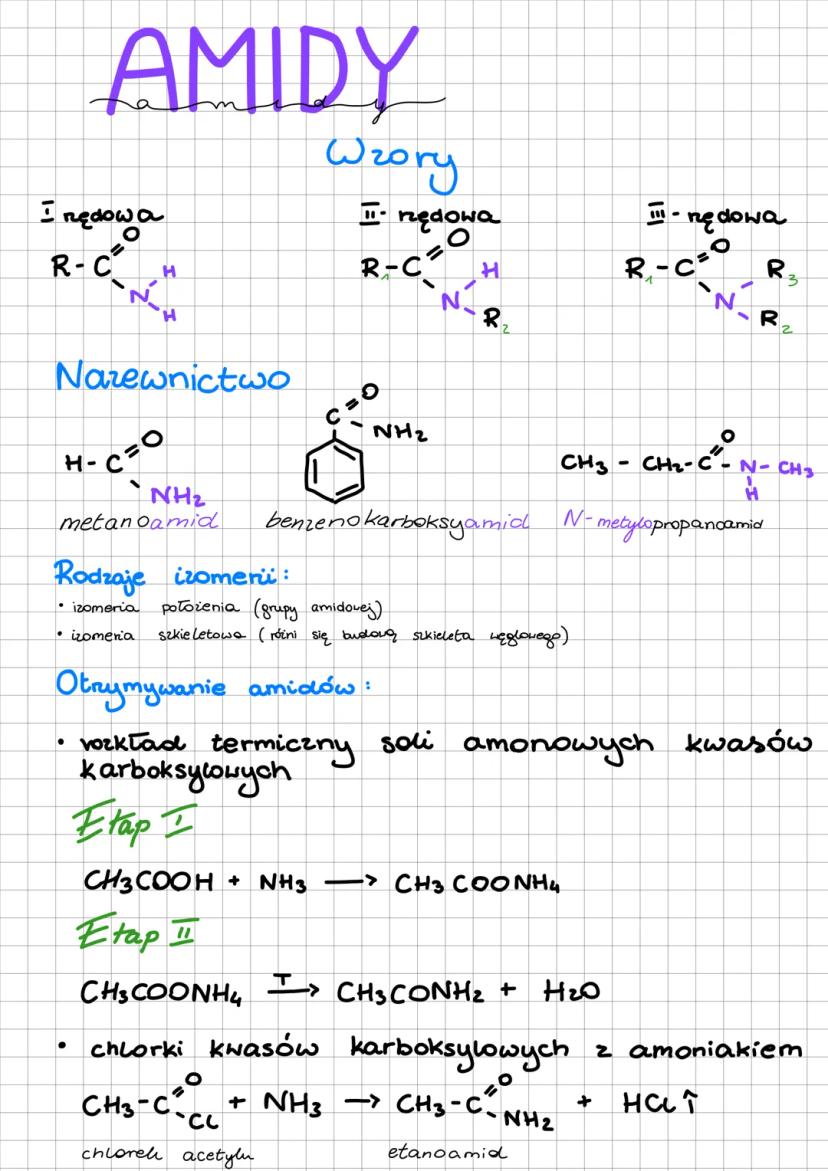 AMIDY
amidy
Wzory
I rzędowa II- rzędowa III- rzędowa
O O O
R-C H R₁-C H R₁-C R₃
N N N
H R₂ R₂
Nazewnictwo
O
C
O NH₂ O
H-C CH₃ - CH₂-C - N-CH₃
NH₂ H
metanoamid benzenokarboksyamid N-metylopropanoamid
Rodzaje izomerii:
• izomeria położenia (grupy amidowej)
• izomeria szkieletowa (różni się budową szkieleta węglowego)
Otrzymywanie amidów:
• rozkład termiczny soli amonowych kwasów
karboksylowych
Etap I
CH₃COOH + NH₃ ⟶ CH₃COONH₄
Etap II
T
CH₃COONH₄ ⟶ CH₃CONH₂ + H₂O
• chlorki kwasów karboksylowych z amoniakiem
O O
CH₃-C + NH₃ ⟶ CH₃-C + HCl↑
Cl NH₂
chlorek acetylu etanoamid